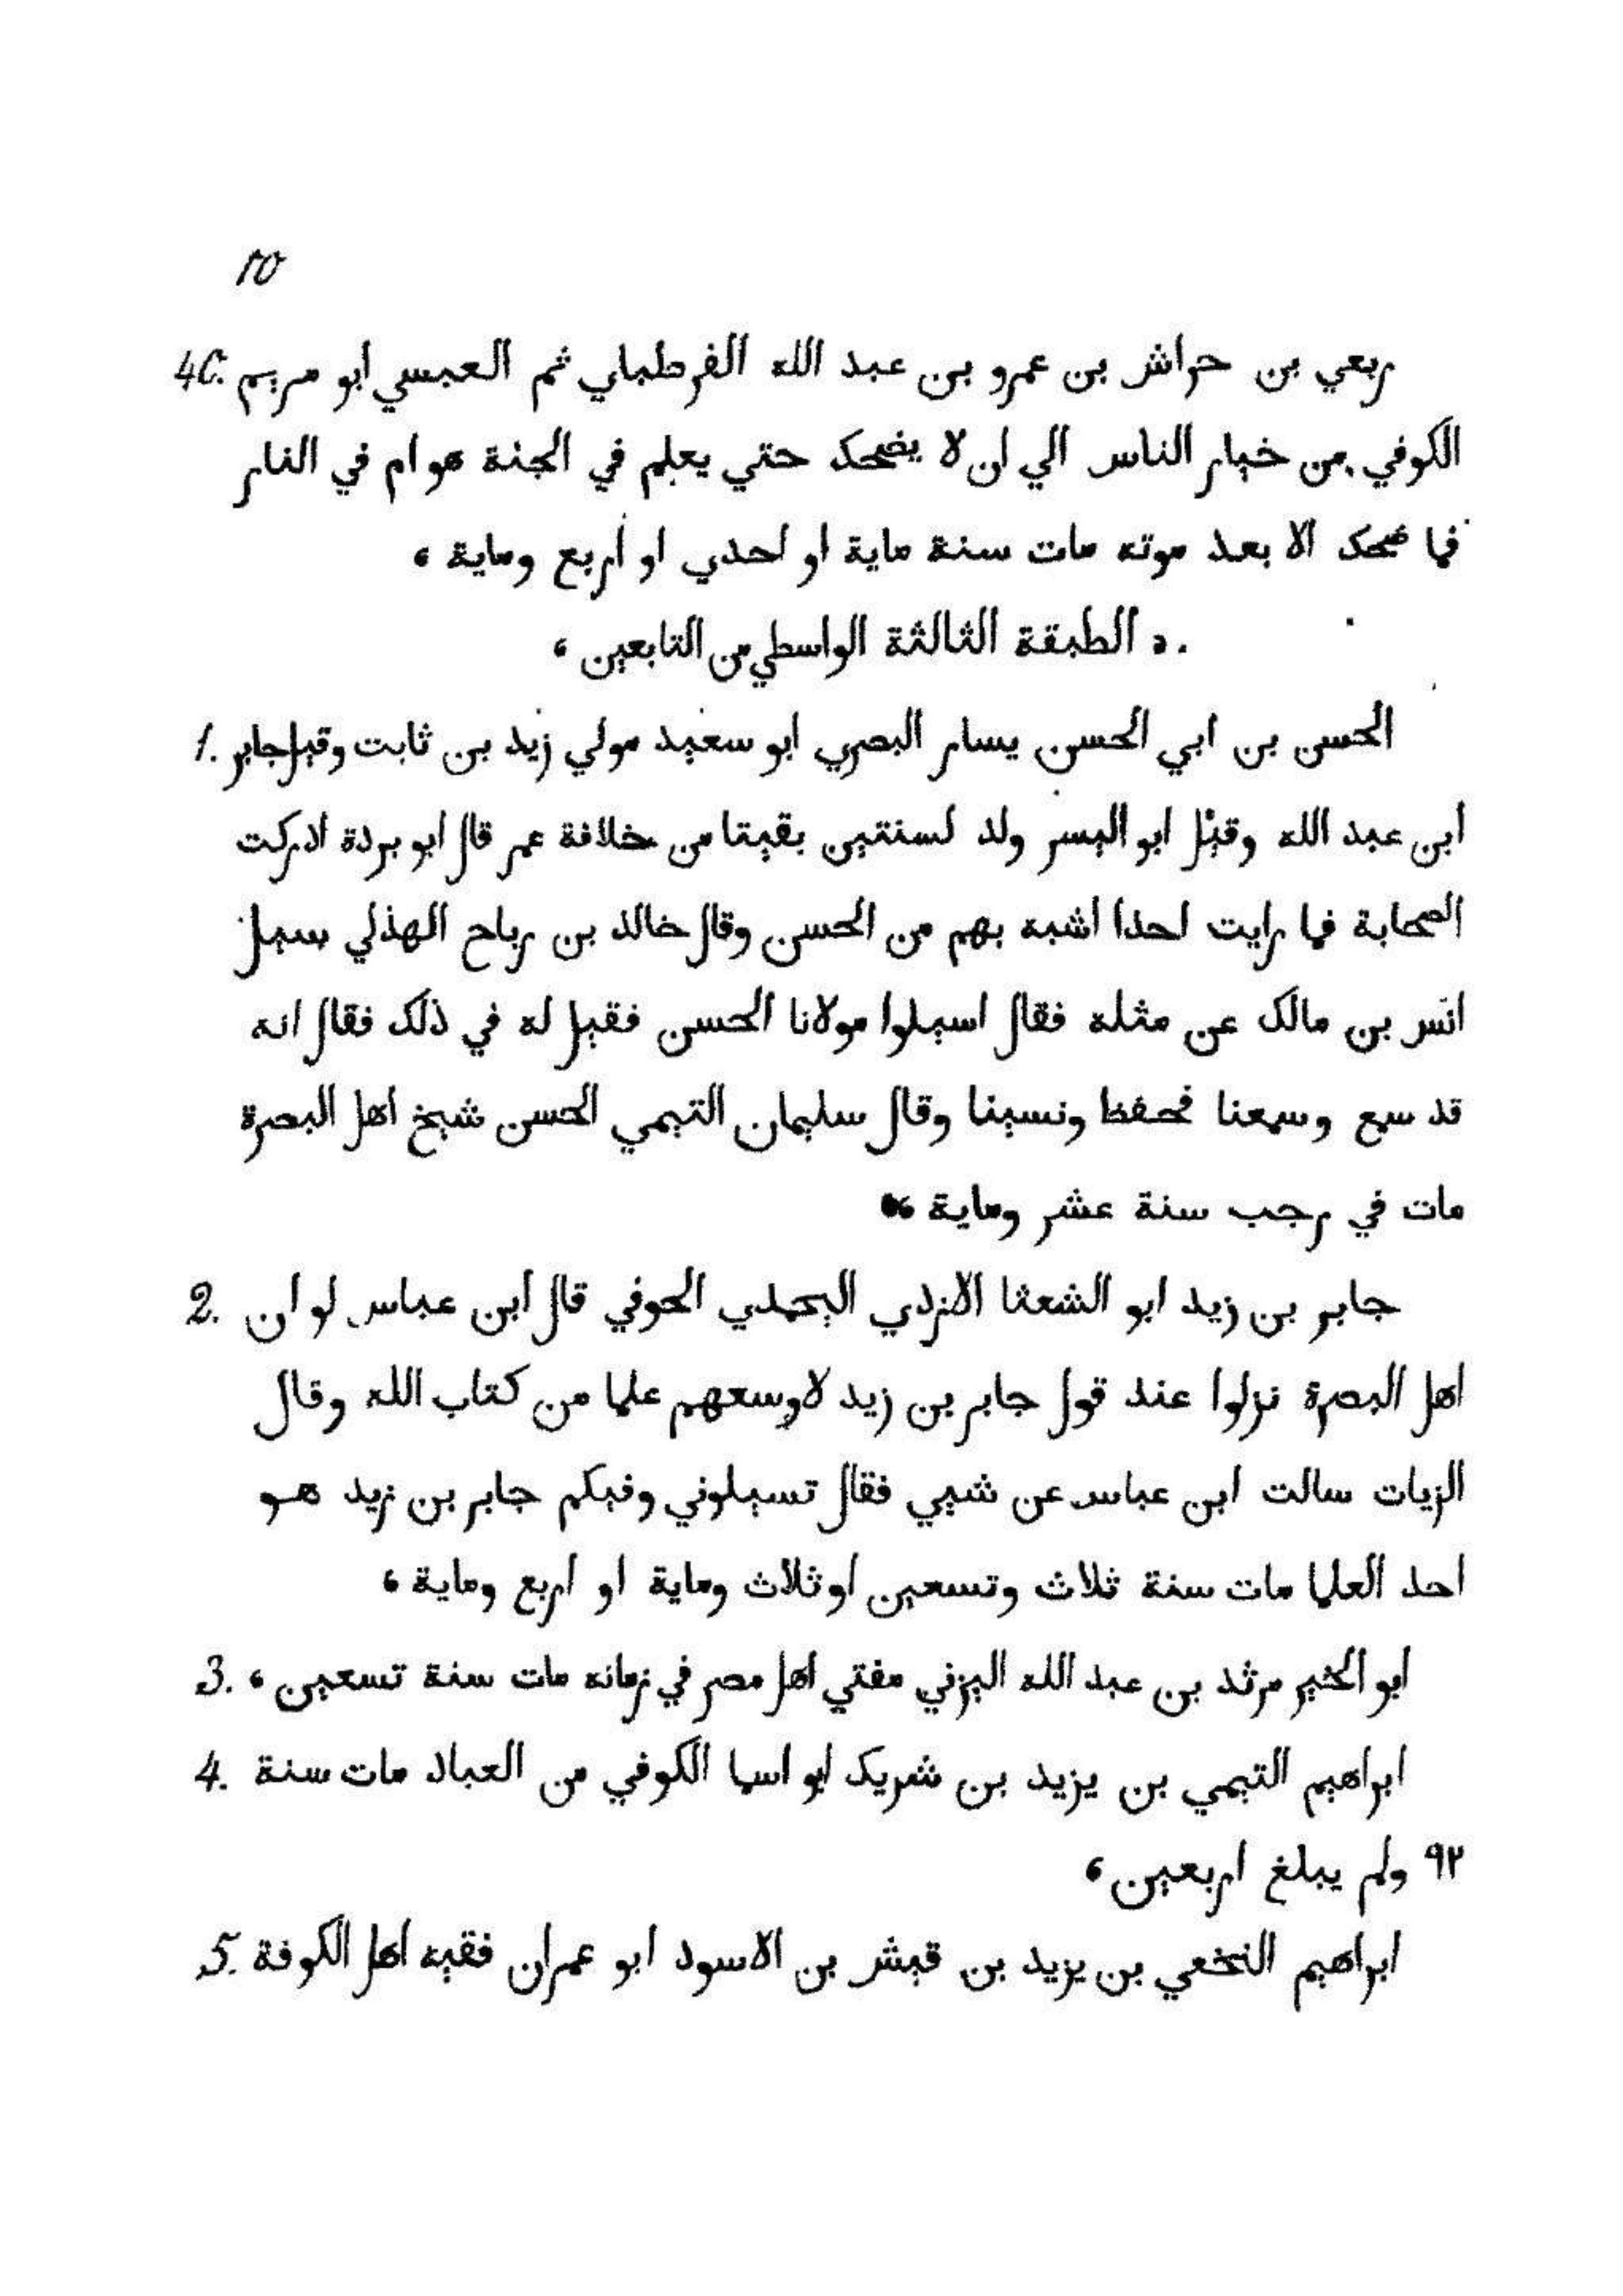 ٢٥
ربعي بن حراش بن عمرو بن عبد الله الفرطباي ثم العبسي ابو مريم .40
الكوفي من خيار الناس الي ان لا يضحك حتي يعلم في الجنة هو ام في النار
فما ضحك الا بعد موته مات سنة ماية او احدي او أربع وماية ،
ه الطبقة الثالثة الواسطي من التابعين ،
الحسن بن ابي الحسن يسار البصري ابو سعيد مولي زيد بن ثابت وقيل جابر .1
ابن عبد الله وقيل ابو اليسر ولد لسنتين بقيتا من خلافة عمر قال ابو بردة ادركت
الصحابة فما رايت احدا اشبه بهم من الحسن وقال خالد بن رباح الهذلي سيل
انس بن مالك عن مثله فقال اسيلوا مولانا الحسن فقيل له في ذلك فقال انه
قد سمع وسمعنا فحفظ ونسينا وقال سليمان التيمي الحسن شيخ اهل البصرة
مات في رجب سنة عشر وماية
جابر بن زيد ابو الشعثا الازدي اليحمدي الحوفي قال ابن عباس لو ان .2
اهل البصرة نزلوا عند قول جابر بن زيد لاوسعهم علما من كتاب الله وقال
الزيات سالت ابن عباس عن شيي فقال تسيلوني وفيكم جابر بن زيد هو
احد العلما مات سنة ثلاث وتسعين او ثلاث وماية او اربع وماية ،
ابو الخير مرثد بن عبد الله اليزني مفتي اهل مصر في زمانه مات سنة تسعين ، .3
ابراهيم التيمي بن يزيد بن شريك ابو اسما الكوفي من العباد مات سنة .4
٩٢ ولم يبلغ اربعين ،
ابراهيم النخعي بن يزيد بن قيش بن الاسود ابو عمران فقيه اهل الكوفة .5